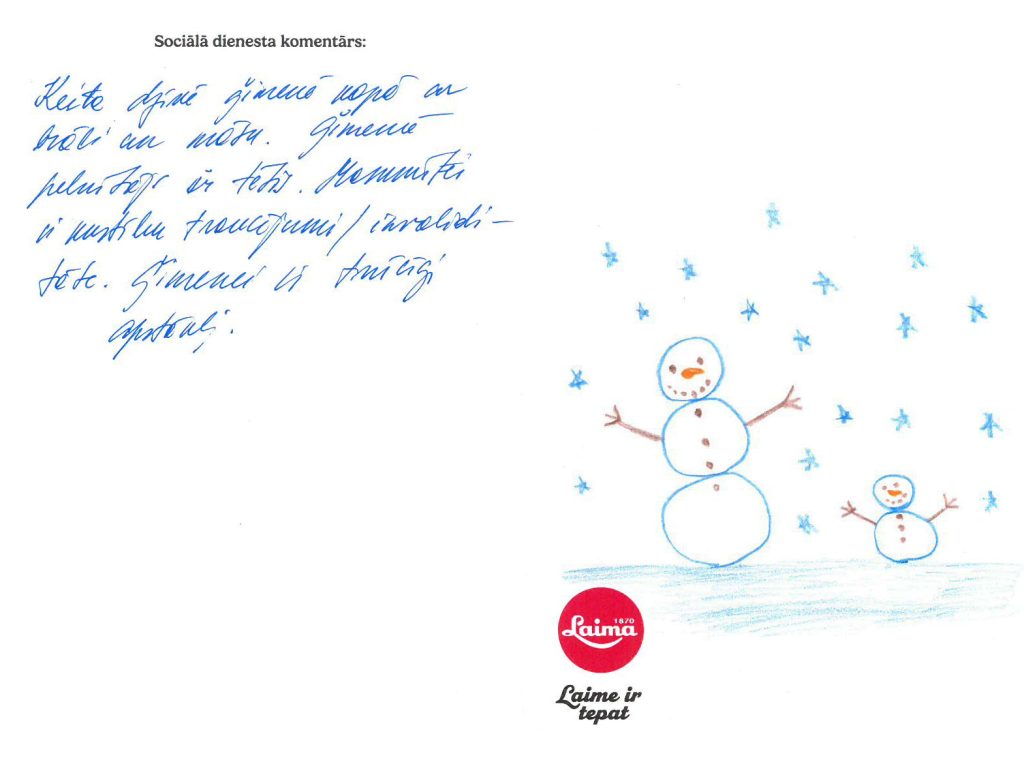 Sociālā dienesta komentārs:
Keita dzīvē ģimenē kopā ar
brāli un māsu. Ģimenē
pelnītājs ir tētis. Mammītei
ir kustību traucējumi/invalidi-
tāte. Ģimenei ir trūcīgi
apstākļi.
Laima
1870
Laime ir
tepat